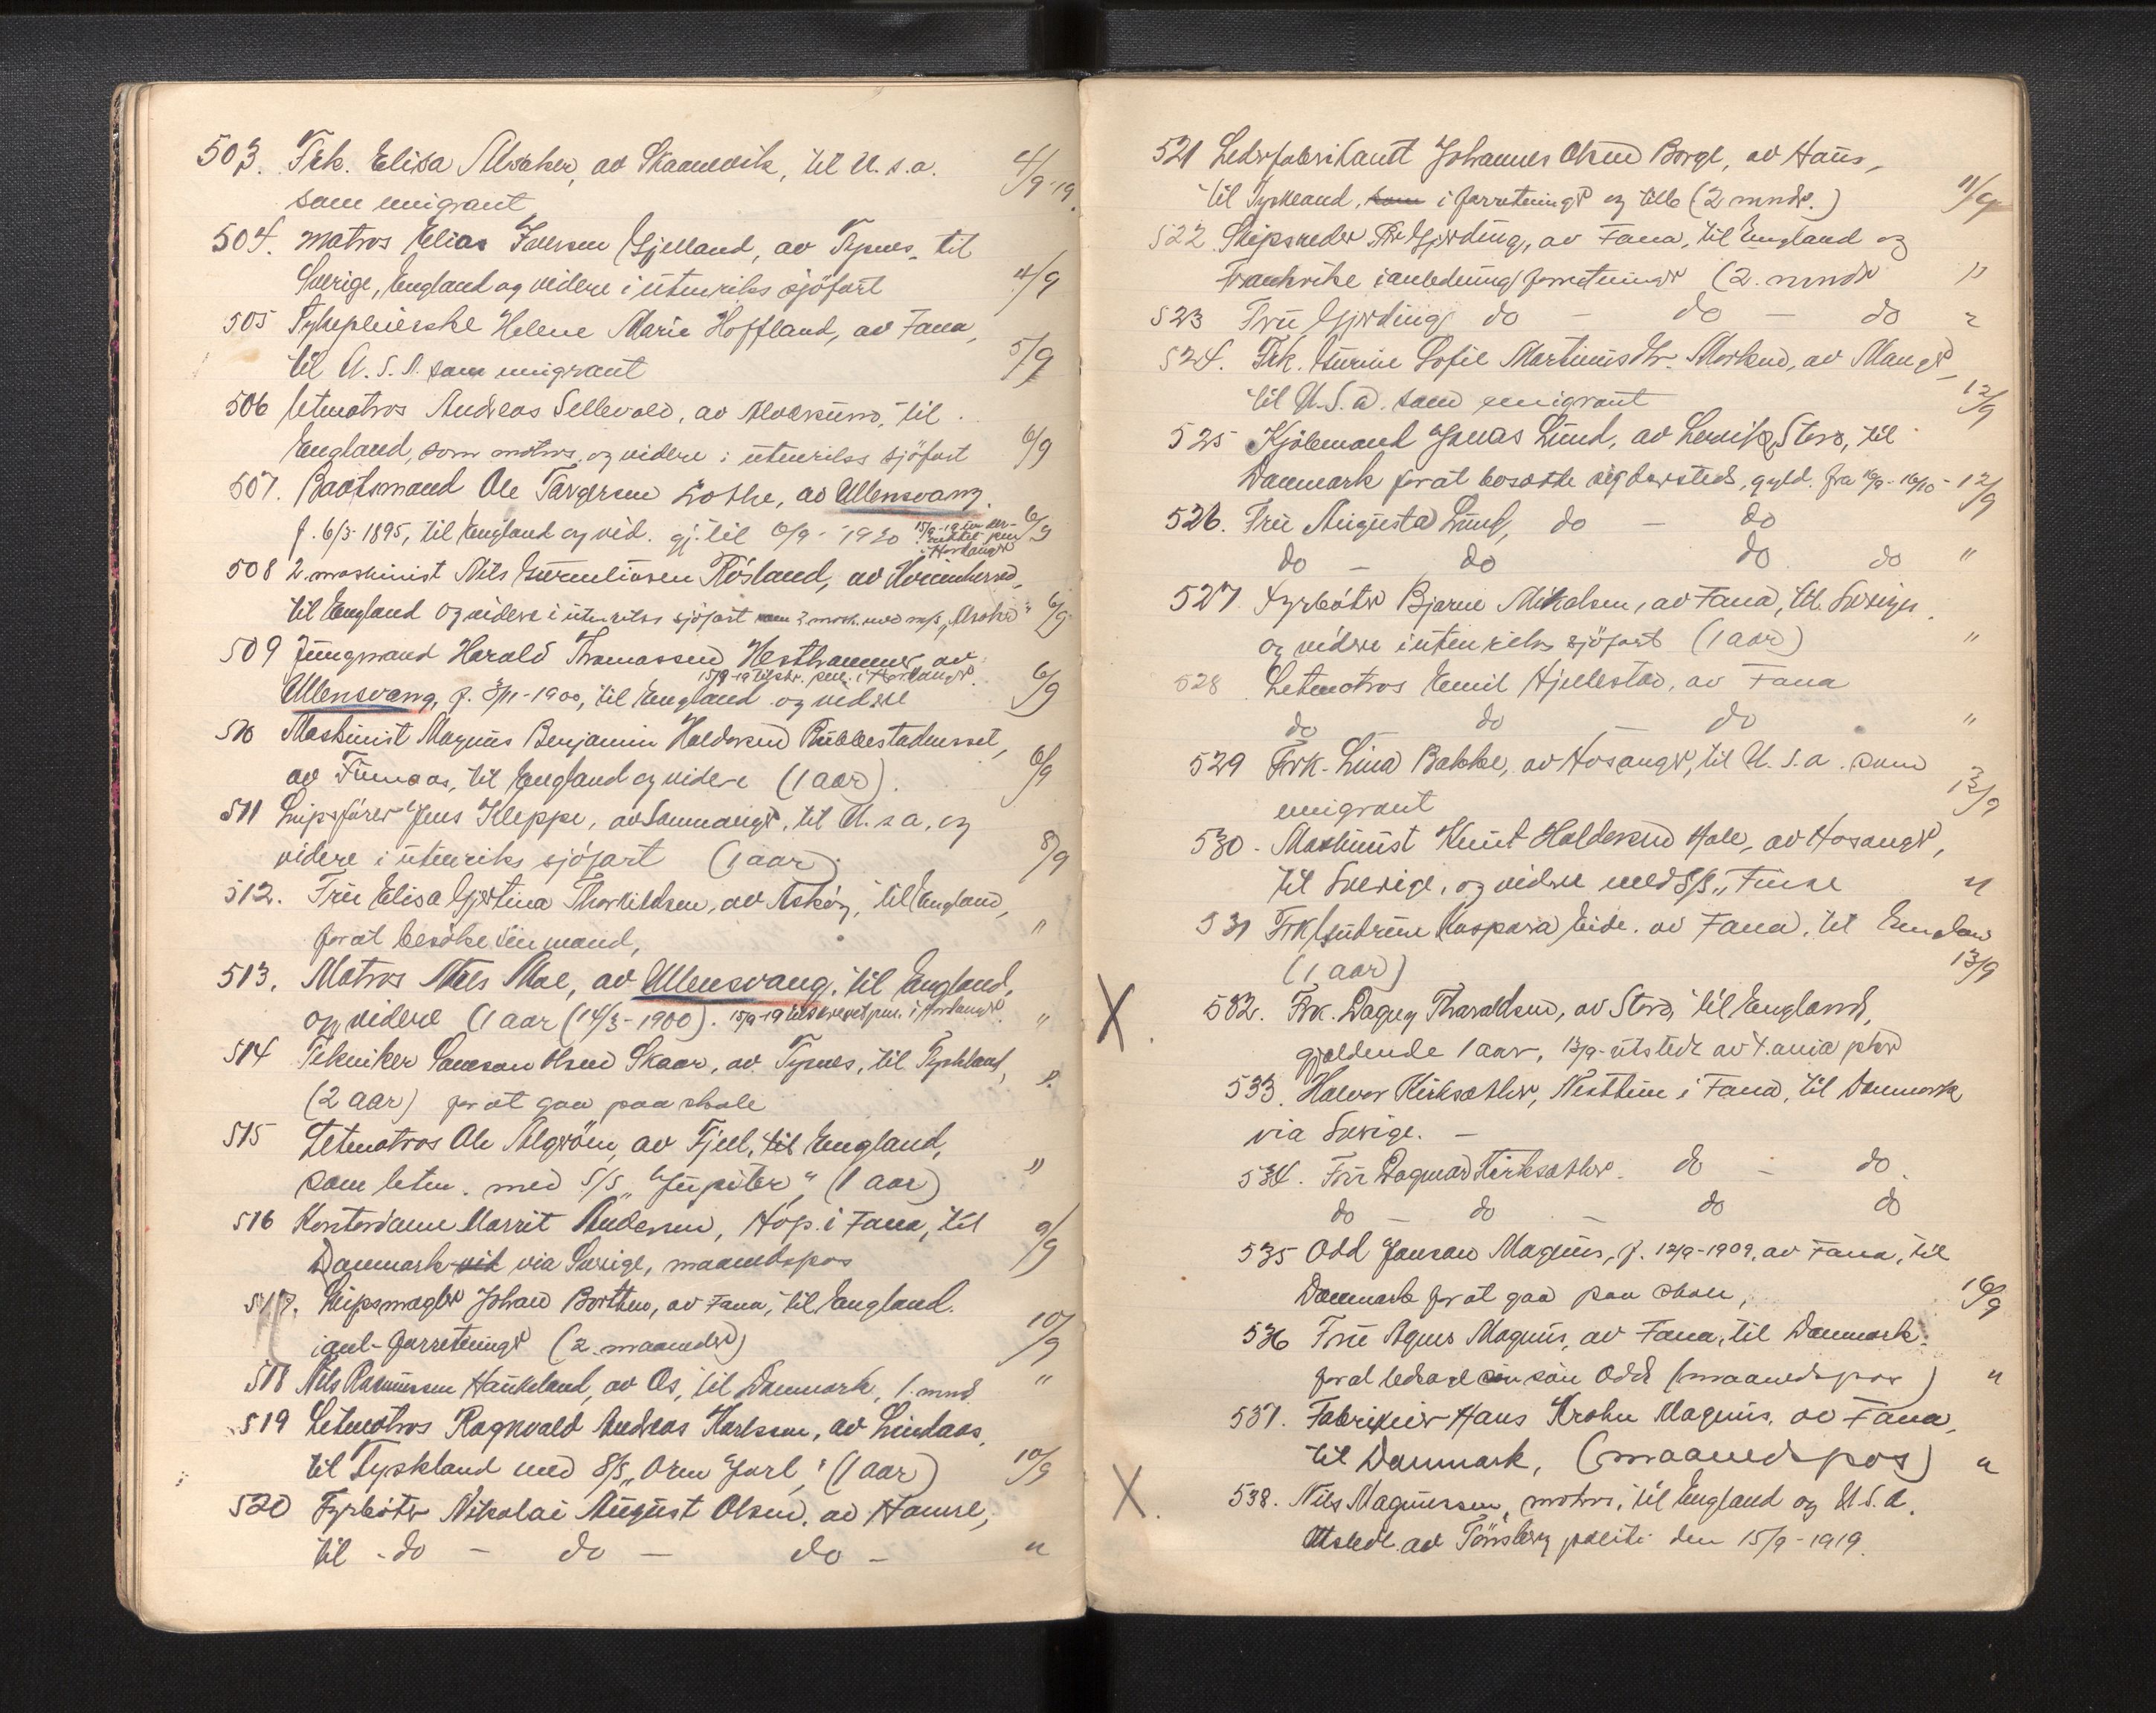 503. Frk. Elisa Alsaker, av Skaanevik, til U.s.a. 4/9-19.
som emigrant
504. Matros Elias Iversen Gjelland, av Tysnes, til
Sverige, England og videre i utenriks sjöfart 4/9
505 Sykepleierske Helene Marie Hoffland, av Fana,
til U.S.A. som emigrant 5/9
506 Letmatros Andreas Sellevold, av til
England, som matros og videre i utenriks sjöfart 6/9
507. Baatsmand Ole Torgersen Lothe, av Ullensvang.
f. 6/5-1895, til England og vid. gj. til 6/9-1920 15/9-19 i Hardanger 6/9
508 2 maskinist Nils Røsland, av
til England og videre i utenriks sjöfart som 2 mask. med m/s 6/9
509 Jungmand Harald Thomassen Hesthammer, av
15/9-19 tilskr. i Hardanger
Ullensvang, f. 3/11-1900, til England og videre 6/9
510 Maskinist Magnus Benjamin Haldorsen Rubbestadneset,
av Finnaas, til England og videre (1 aar). 6/9
511 Skipsfører Jens Kleppe, av Samnanger, til U.s.a, og
videre i utenriks sjöfart (1 aar) 8/9
512. Fru Elisa Gjertina Thorkildsen, av Askøy, til England,
for at besöke sin mand, "
513. Matros Nils Moe, av Ullensvang, til England,
og videre (1 aar (14/3-1900). 15/9-19 i Hardanger "
514 Tekniker Samson Olsen Skaar, av Tysnes, til Tyskland,
(2 aar) for at gaa paa skole "
515 Letmatros Ole Algrøen, av Fjell, til England,
som letm. med S/S "Jupiter" (1 aar) "
516 Kontordame Marrit Andersen, Hop i Fana, til
Danmark via Sverige, maanedspas 9/9
517. Skipsmægler Johan Borthen, av Fana, til England.
i anl. forretninger (2 maaneder) 10/9
518 Nils Rasmussen Haukeland, av Os, til Danmark, 1. mnd "
519 Letmatros Ragnvald Andreas Karlssen, av Lindaas,
til Tyskland med S/S "Orm Jarl", (1 aar) 10/9
520 Fyrböter Nikolai August Olsen, av Hamre,
til - do - do - do - "
521 Lederfabrikant Johannes Olsen Borge, av Haus,
til Tyskland, som i forretninger og (2 mndr.) 11/9
522 Skipsreder Gjerding, av Fana, til England og
Frankrike i anledning forretninger (2. mndr "
523 Fru Gjerding do - do - do "
524. Frk. Gurine Sofie Martinusdtr. av Manger,
til U.S.a. som emigrant 12/9
525 Kjøbmand Jonas Lund, av Lervik, Stord, til
Danmark forat bosætte sig dersteds, gyld. fra 16/9-16/10- 12/9
526. Fru Augusta Lund, do - do
do - do do do "
527. Fyrböter Bjarne Mikalsen, av Fana, til Sverige
og videre i utenriks sjöfart (1 aar) "
528 Letmatros Emil Hjellestad, av Fana
do do - do "
529 Frk. Lina Bakke, av Hosanger, til U.S.a. som
emigrant 13/9
530 - Maskinist Knut Haldorsen Hole, av Hosanger,
til Sverige, og videre med S/S "Finse "
531 Frk Gudrun Kaspara Eide, av Fana, til England
(1 aar) 13/9
X. 532. Frk. Dagny Tharaldsen, av Stord, til England,
gjældende 1 aar, 13/9 utstedt av
533. Halvor Kirksæther, Nesttun i Fana, til Danmark
via Sverige. -
534. Fru Dagmar Kirksæther - do - do.
do - do - do do
535 Odd Jonsen Magnus, f. 12/9-1909, av Fana, til
Danmark for at gaa paa skole, 16/9
536 Fru Agnes Magnus, av Fana, til Danmark.
for at ledsage sin sön Odd (maanedspas) "
537. Fabrikeier Hans Krohn Magnus, av Fana,
til Danmark, (maanedspas) "
X. 538. Nils Magnussen, matros, til England og U.S.A.
Utstedt av Tönsberg politi den 15/9-1919.